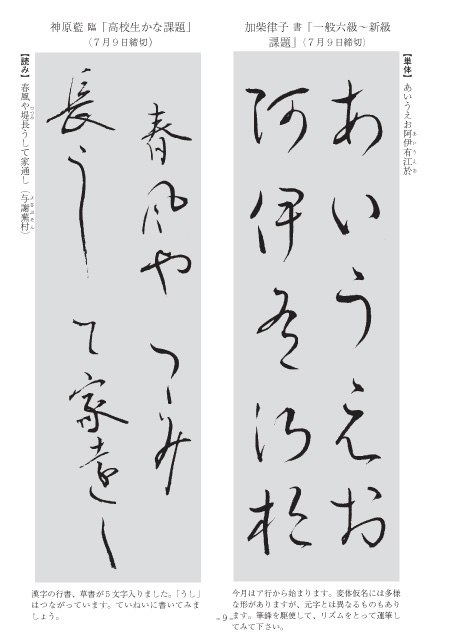 加柴律子 書「一般六級～新級
課題」（7月9日締切）
【単体】 あいうえお阿伊有江於
あいうえお
阿伊有江於
今月はア行から始まります。変体仮名には多様
な形がありますが、元字とは異なるものもあり
ます。筆鋒を駆使して、リズムをとって運筆し
てみて下さい。
神原藍 臨「高校生かな課題」
（7月9日締切）
春風やつゝみ
長うして家遠し
【読み】 春風や堤長うして家通し（与謝蕪村）
漢字の行書、草書が5文字入りました。「うし」
はつながっています。ていねいに書いてみま
しょう。
- 9 -